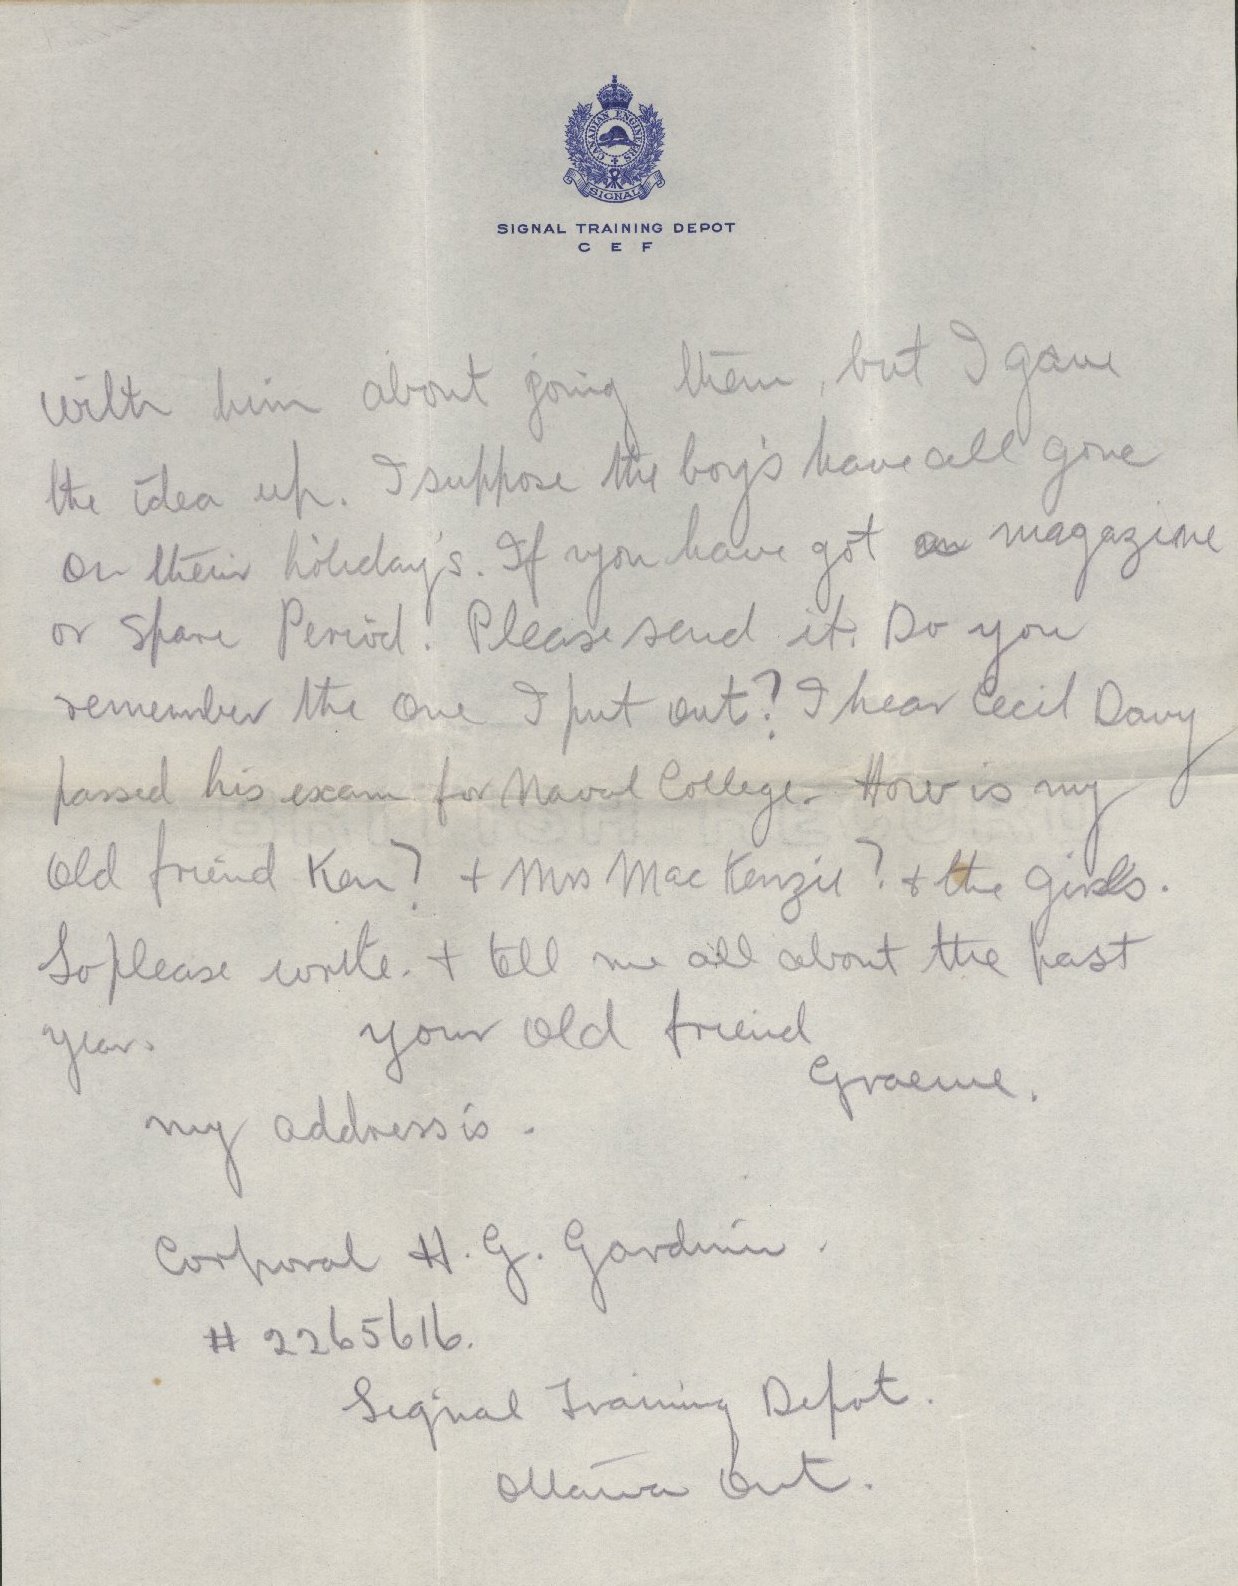 CANADIAN ENGINEERS
SIGNAL
SIGNAL TRAINING DEPOT
C E F
with him about joing them, but I gave
the idea up. I suppose the boy's have all gone
on their holiday's. If you have got magazine
or Spare Period. Please send it. Do you
remember the One I put out? I hear Cecil Davy
passed his exam for Naval College. How is my
Old friend Ken? + Mrs MacKenzie? + the girls.
So please write. + tell me all about the past
year. your Old friend
Graeme.
my address is.
Corporal H. G. Gardiner.
# 2265616.
Signal Training Depot.
Ottawa Ont.